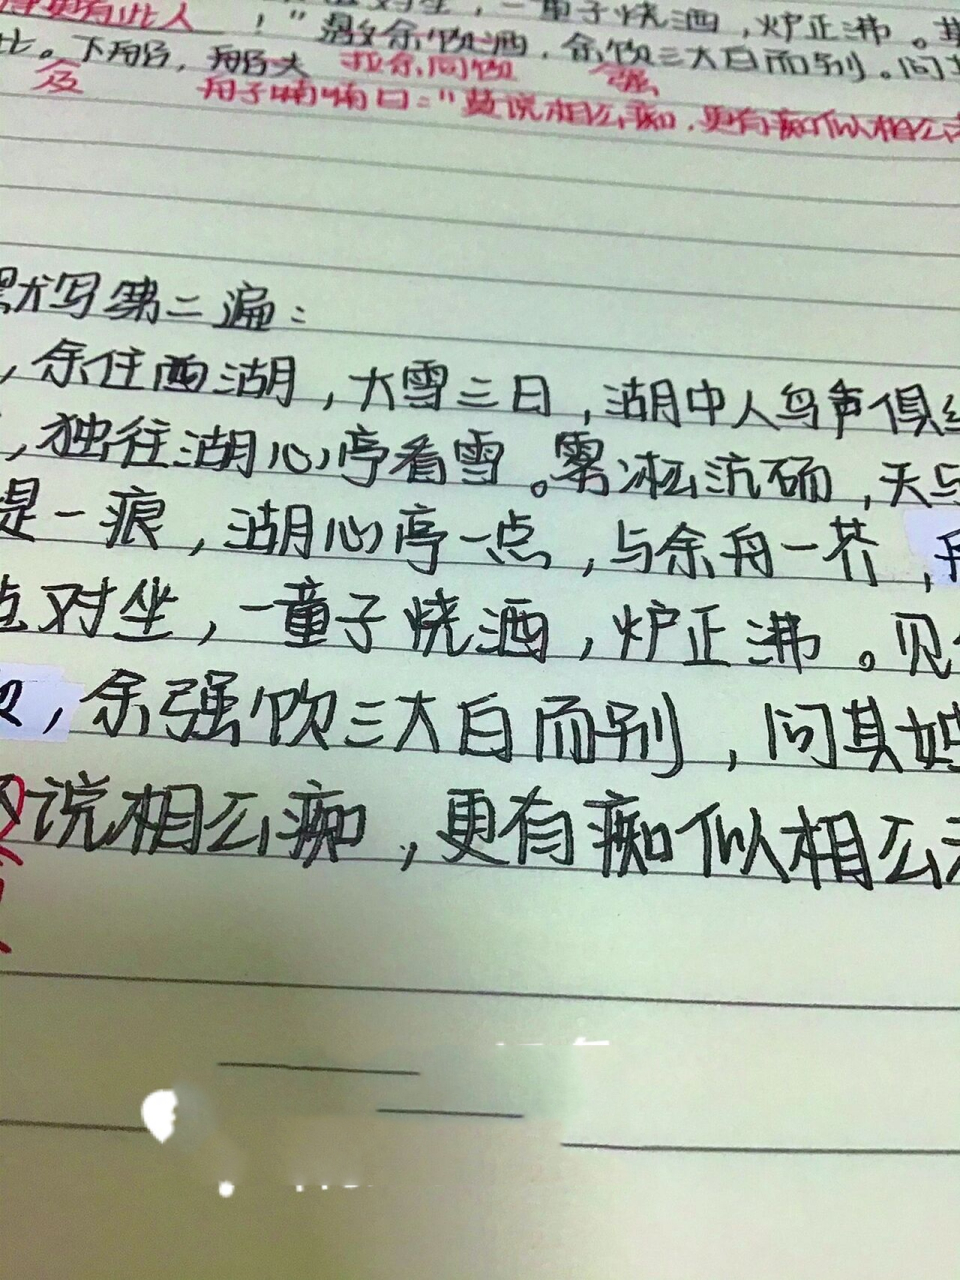 更有此人！"
对坐，一童子烧酒，炉正沸。
余饮酒，余饮三大白而别。问
此。下船后，船家 拉余同饮 强
及 舟子喃喃曰："莫说相公痴，更有痴似相公
默写第二遍：
，余住西湖，大雪三日，湖中人鸟声俱
，独往湖心亭看雪。雾凇沆砀，天与
堤一痕，湖心亭一点，与余舟一芥，舟
对坐，一童子烧酒，炉正沸。见
，余强饮三大白而别，问其姓
说相公痴，更有痴似相公